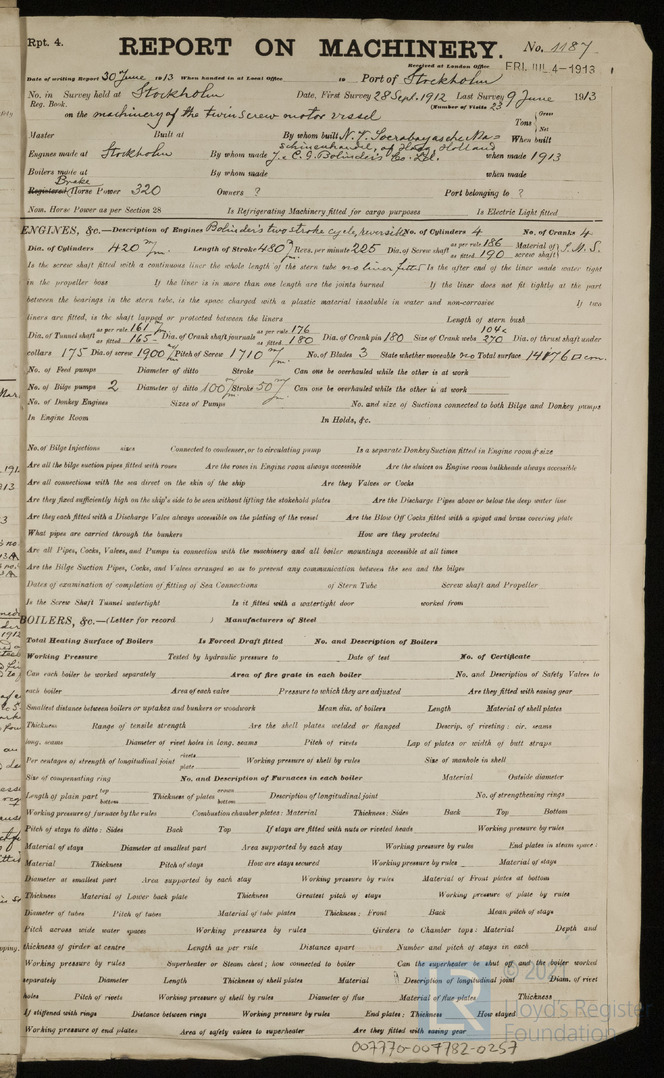 Rpt. 4.
REPORT ON MACHINERY.
No. 1187
Received at London Office FRI. JUL 4-1913
Date of writing Report 30 June 1913 When handed in at Local Office 19 Port of Stockholm
No. in Survey held at Stockholm Date, First Survey 28 Sept. 1912 Last Survey 9 June 1913
Reg. Book. (Number of Visits 23
on the machinery of the twin screw motor vessel Tons { Gross Net
Master Built at By whom built N. V. When built
Engines made at Stockholm By whom made J. & C. G. Bolinder's Co. Ltd. when made 1913
Boilers made at By whom made when made
Brake
Registered Horse Power 320 Owners ? Port belonging to ?
Nom. Horse Power as per Section 28 Is Refrigerating Machinery fitted for cargo purposes Is Electric Light fitted
ENGINES, &c.—Description of Engines Bolinder's two stroke cycle, reversible No. of Cylinders 4 No. of Cranks 4
Dia. of Cylinders 420 m/m. Length of Stroke 480 m/m. Revs. per minute 225 Dia. of Screw shaft as per rule 186 as fitted 190 Material of screw shaft } S.M.S.
Is the screw shaft fitted with a continuous liner the whole length of the stern tube no liner fitted Is the after end of the liner made water tight
in the propeller boss If the liner is in more than one length are the joints burned If the liner does not fit tightly at the part
between the bearings in the stern tube, is the space charged with a plastic material insoluble in water and non-corrosive If two
liners are fitted, is the shaft lapped or protected between the liners Length of stern bush
Dia. of Tunnel shaft as per rule 161 as fitted 165 m/m Dia. of Crank shaft journals as per rule 176 as fitted 180 Dia. of Crank pin 180 Size of Crank webs 104x270 Dia. of thrust shaft under
collars 175 Dia. of screw 1900 m/m Pitch of Screw 1710 m/m No. of Blades 3 State whether moveable no Total surface 14876 □ cm.
No. of Feed pumps Diameter of ditto Stroke Can one be overhauled while the other is at work
No. of Bilge pumps 2 Diameter of ditto 100 m/m Stroke 50 m/m Can one be overhauled while the other is at work
No. of Donkey Engines Sizes of Pumps No. and size of Suctions connected to both Bilge and Donkey pumps
In Engine Room In Holds, &c.
No. of Bilge Injections sizes Connected to condenser, or to circulating pump Is a separate Donkey Suction fitted in Engine room & size
Are all the bilge suction pipes fitted with roses Are the roses in Engine room always accessible Are the sluices on Engine room bulkheads always accessible
Are all connections with the sea direct on the skin of the ship Are they Valves or Cocks
Are they fixed sufficiently high on the ship's side to be seen without lifting the stokehold plates Are the Discharge Pipes above or below the deep water line
Are they each fitted with a Discharge Valve always accessible on the plating of the vessel Are the Blow Off Cocks fitted with a spigot and brass covering plate
What pipes are carried through the bunkers How are they protected
Are all Pipes, Cocks, Valves, and Pumps in connection with the machinery and all boiler mountings accessible at all times
Are the Bilge Suction Pipes, Cocks, and Valves arranged so as to prevent any communication between the sea and the bilges
Dates of examination of completion of fitting of Sea Connections of Stern Tube Screw shaft and Propeller
Is the Screw Shaft Tunnel watertight Is it fitted with a watertight door worked from
BOILERS, &c.—(Letter for record ) Manufacturers of Steel
Total Heating Surface of Boilers Is Forced Draft fitted No. and Description of Boilers
Working Pressure Tested by hydraulic pressure to Date of test No. of Certificate
Can each boiler be worked separately Area of fire grate in each boiler No. and Description of Safety Valves to
each boiler Area of each valve Pressure to which they are adjusted Are they fitted with easing gear
Smallest distance between boilers or uptakes and bunkers or woodwork Mean dia. of boilers Length Material of shell plates
Thickness Range of tensile strength Are the shell plates welded or flanged Descrip. of riveting: cir. seams
long. seams Diameter of rivet holes in long. seams Pitch of rivets Lap of plates or width of butt straps
Per centages of strength of longitudinal joint rivets plate Working pressure of shell by rules Size of manhole in shell
Size of compensating ring No. and Description of Furnaces in each boiler Material Outside diameter
Length of plain part top bottom Thickness of plates crown bottom Description of longitudinal joint No. of strengthening rings
Working pressure of furnace by the rules Combustion chamber plates: Material Thickness: Sides Back Top Bottom
Pitch of stays to ditto: Sides Back Top If stays are fitted with nuts or riveted heads Working pressure by rules
Material of stays Diameter at smallest part Area supported by each stay Working pressure by rules End plates in steam space:
Material Thickness Pitch of stays How are stays secured Working pressure by rules Material of stays
Diameter at smallest part Area supported by each stay Working pressure by rules Material of Front plates at bottom
Thickness Material of Lower back plate Thickness Greatest pitch of stays Working pressure of plate by rules
Diameter of tubes Pitch of tubes Material of tube plates Thickness: Front Back Mean pitch of stays
Pitch across wide water spaces Working pressures by rules Girders to Chamber tops: Material Depth and
thickness of girder at centre Length as per rule Distance apart Number and pitch of stays in each
Working pressure by rules Superheater or Steam chest; how connected to boiler Can the superheater be shut off and the boiler worked
separately Diameter Length Thickness of shell plates Material Description of longitudinal joint Diam. of rivet
holes Pitch of rivets Working pressure of shell by rules Diameter of flue Material of flue plates Thickness
If stiffened with rings Distance between rings Working pressure by rules End plates: Thickness How stayed
Working pressure of end plates Area of safety valves to superheater Are they fitted with easing gear
© 2021
Lloyd's Register
Foundation
007770-007782-0257